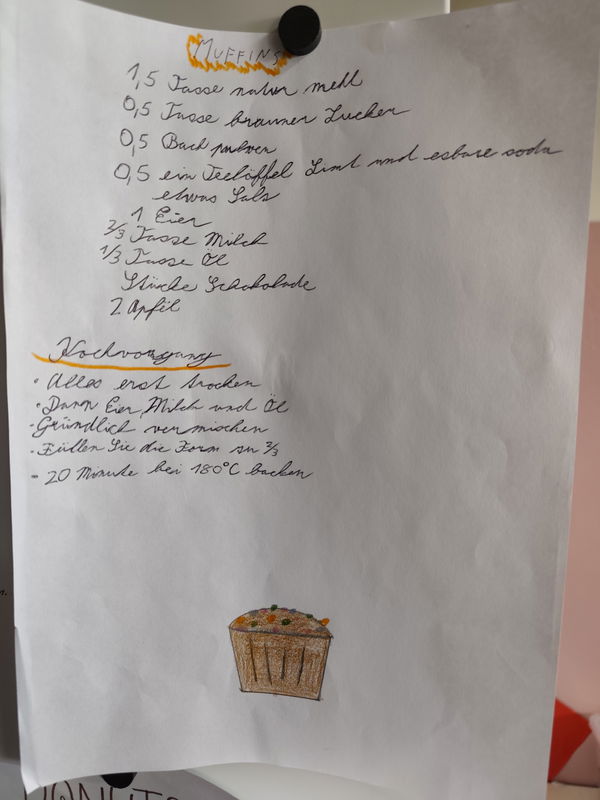 MUFFINS
1,5 Tasse natur mehl
0,5 Tasse brauner Zucker
0,5 Back pulver
0,5 ein Teelöffel Zimt und esbare soda
etwas Salz
1 Eier
2/3 Tasse Milch
1/3 Tasse Öl
Stücke Schokolade
2 Apfel
Kochvorgang
• Alles erst trocken
• Dann Eier, Milch und Öl
- Gründlich vermischen
• Füllen Sie die Form zu 2/3
- 20 Minute bei 180°C backen
DONUTS